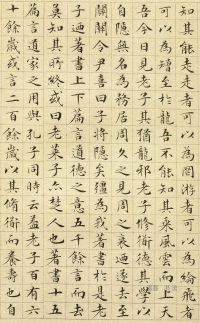 知其能走走者可以為罔游者可以為綸飛者
可以為矰至於龍吾不能知其乘風雲而上天
吾今日見老子其猶龍邪老子脩道德其學以
自隱無名為務居周久之見周之衰迺遂去至
關關令尹喜曰子將隱矣彊為我著書於是老
子迺著書上下篇言道德之意五千餘言而去
莫知其所終或曰老萊子亦楚人也著書十五
篇言道家之用與孔子同時云蓋老子百有六
十餘歲或言二百餘歲以其脩道而養壽也自